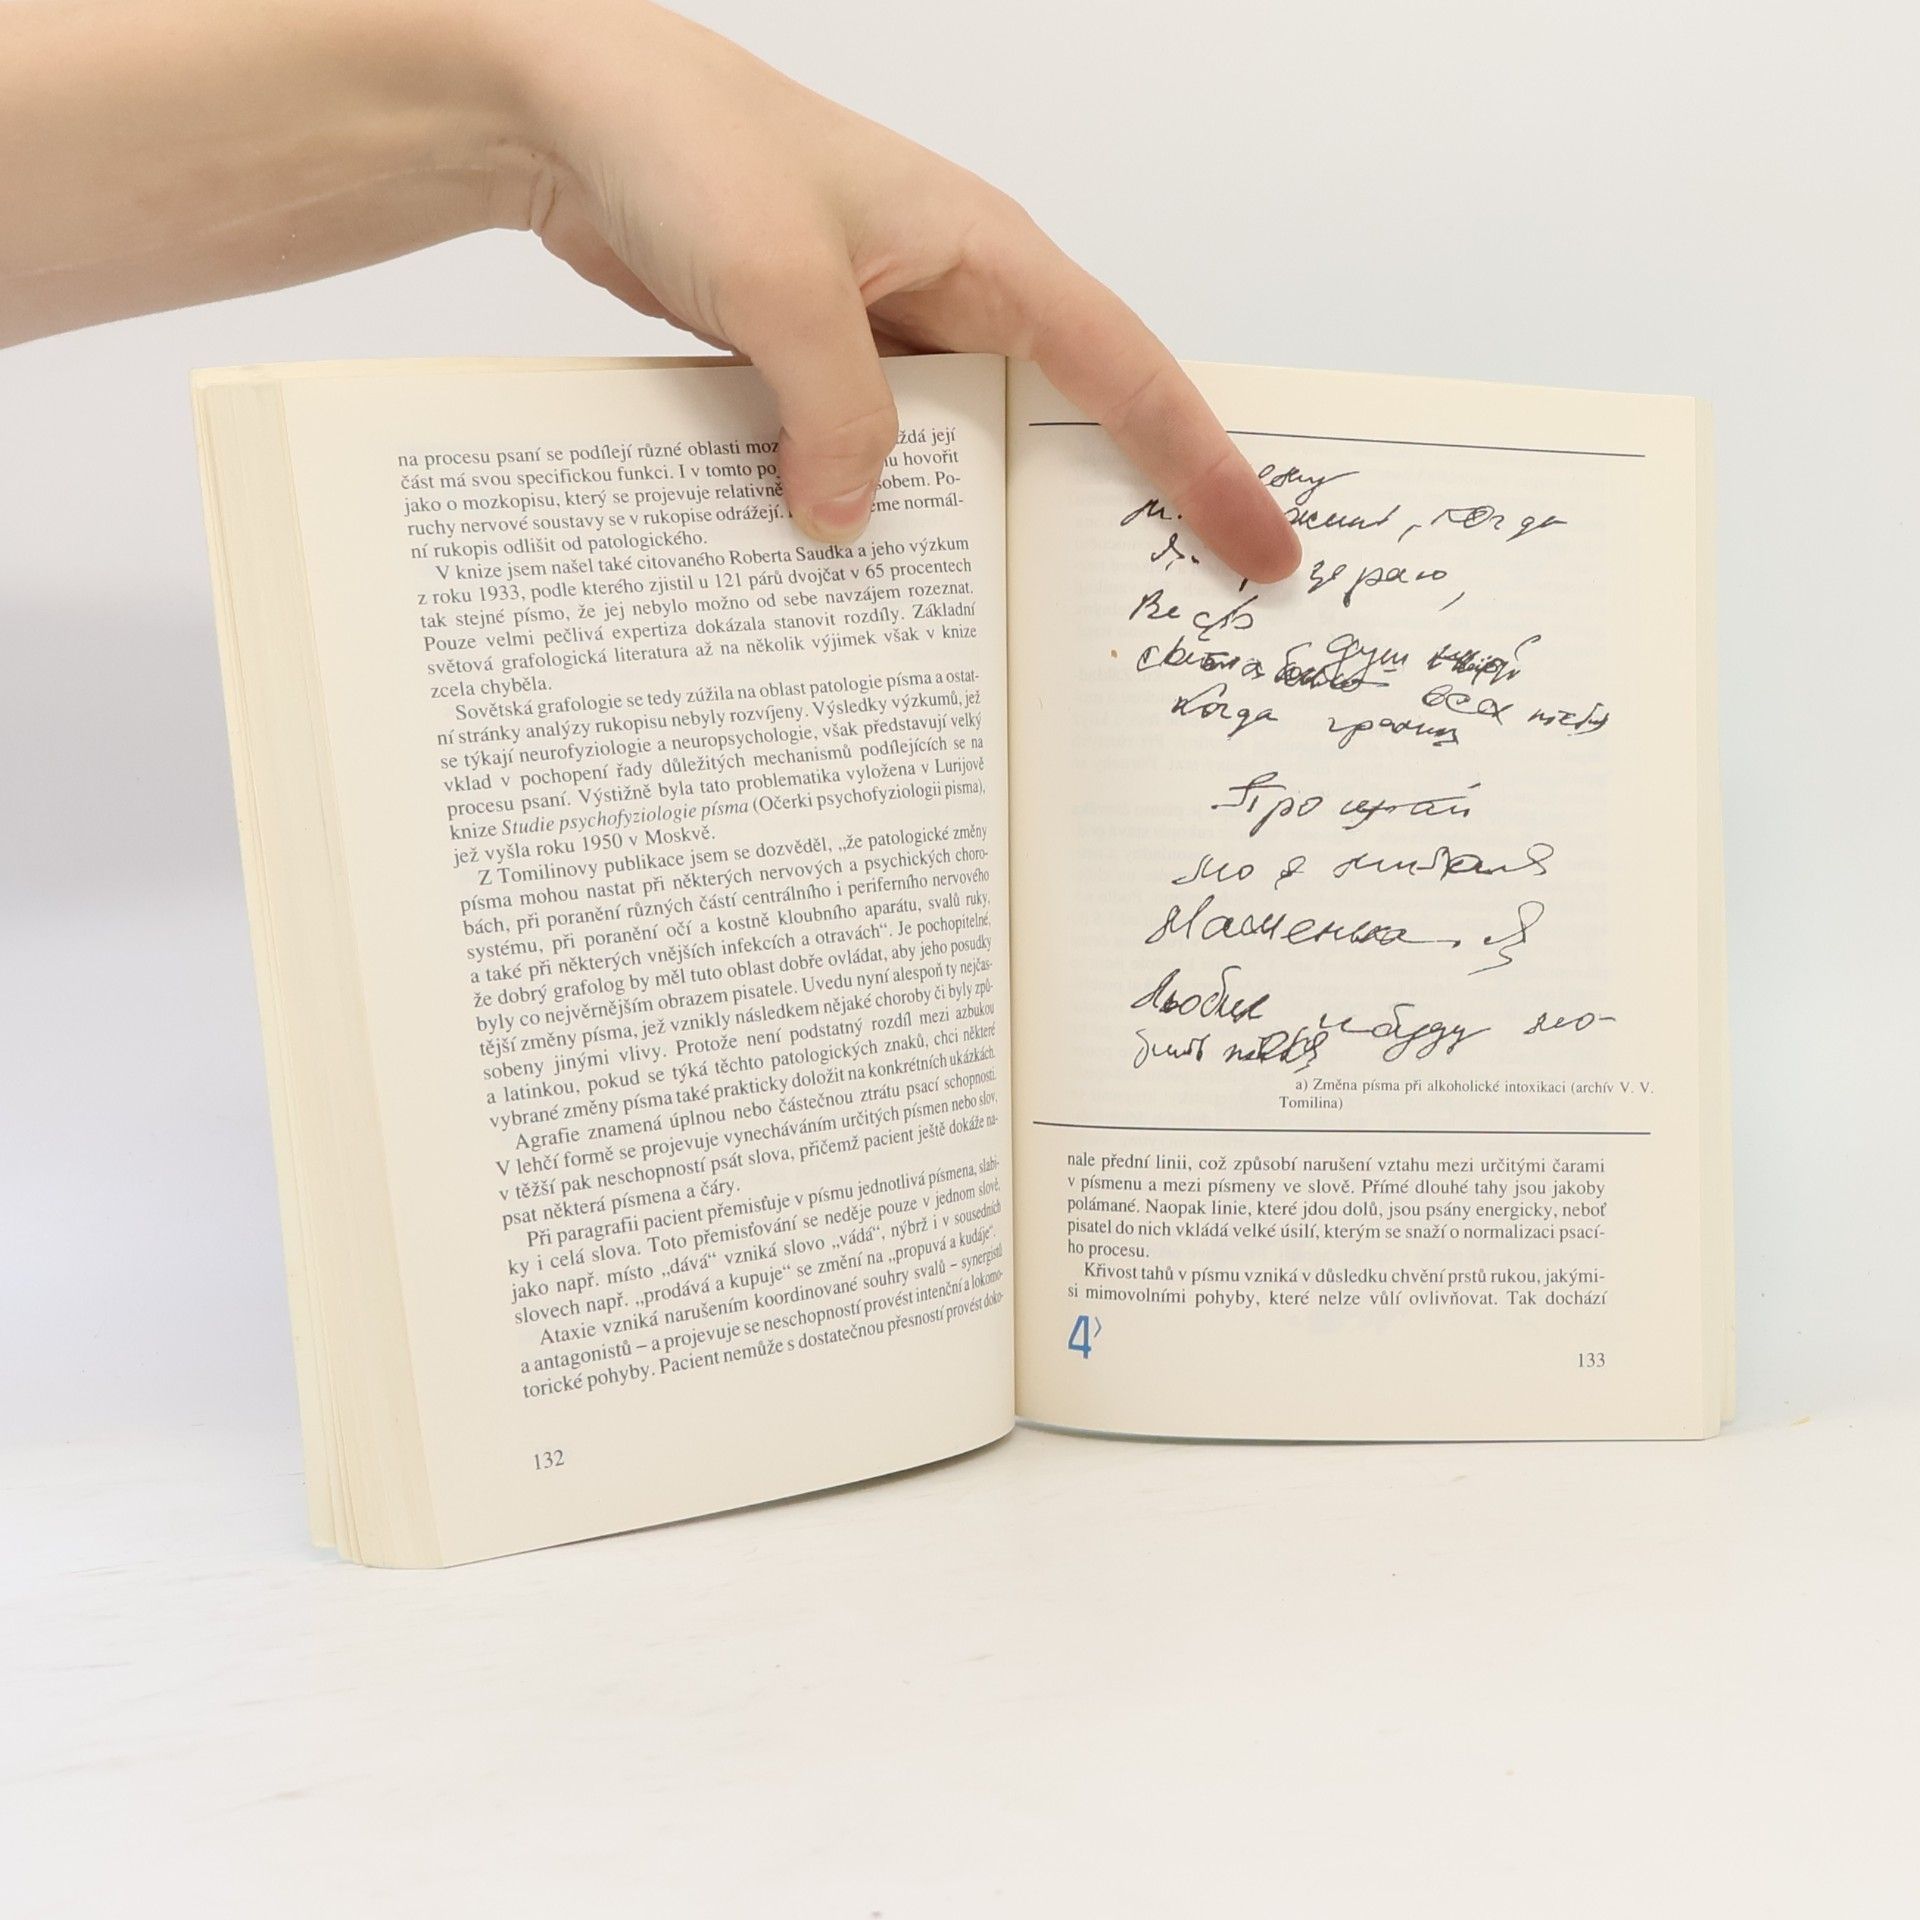 na procesu psaní se podílejí různé oblasti moz ždá její
část má svou specifickou funkci. I v tomto po nu hovořit
jako o mozkopisu, který se projevuje relativně sobem. Po-
ruchy nervové soustavy se v rukopise odrážejí. eme normál-
ní rukopis odlišit od patologického.
V knize jsem našel také citovaného Roberta Saudka a jeho výzkum
z roku 1933, podle kterého zjistil u 121 párů dvojčat v 65 procentech
tak stejné písmo, že jej nebylo možno od sebe navzájem rozeznat.
Pouze velmi pečlivá expertiza dokázala stanovit rozdíly. Základní
světová grafologická literatura až na několik výjimek však v knize
zcela chyběla.
Sovětská grafologie se tedy zúžila na oblast patologie písma a ostat-
ní stránky analýzy rukopisu nebyly rozvíjeny. Výsledky výzkumů, jež
se týkají neurofyziologie a neuropsychologie, však představují velký
vklad v pochopení řady důležitých mechanismů podílejících se na
procesu psaní. Výstižně byla tato problematika vyložena v Lurijově
knize Studie psychofyziologie písma (Očerki psychofyziologii pisma),
jež vyšla roku 1950 v Moskvě.
Z Tomilinovy publikace jsem se dozvěděl, „že patologické změny
písma mohou nastat při některých nervových a psychických choro-
bách, při poranění různých částí centrálního i periferního nervového
systému, při poranění očí a kostně kloubního aparátu, svalů ruky,
a také při některých vnějších infekcích a otravách“. Je pochopitelné,
že dobrý grafolog by měl tuto oblast dobře ovládat, aby jeho posudky
byly co nejvěrnějším obrazem pisatele. Uvedu nyní alespoň ty nejčas-
tější změny písma, jež vznikly následkem nějaké choroby či byly způ-
sobeny jinými vlivy. Protože není podstatný rozdíl mezi azbukou
a latinkou, pokud se týká těchto patologických znaků, chci některé
vybrané změny písma také prakticky doložit na konkrétních ukázkách.
Agrafie znamená úplnou nebo částečnou ztrátu psací schopnosti.
V lehčí formě se projevuje vynecháváním určitých písmen nebo slov,
v těžší pak neschopností psát slova, přičemž pacient ještě dokáže na-
psat některá písmena a čáry.
Při paragrafii pacient přemisťuje v písmu jednotlivá písmena, slabi-
ky i celá slova. Toto přemisťování se neděje pouze v jednom slově,
jako např. místo „dává“ vzniká slovo „vádá“, nýbrž i v sousedních
slovech např. „prodává a kupuje“ se změní na „propuvá a kudáje“.
Ataxie vzniká narušením koordinované souhry svalů – synergistů
a antagonistů – a projevuje se neschopností provést intenční a lokomo-
torické pohyby. Pacient nemůže s dostatečnou přesností provést doko-
132
, когда
Весь
душ
Когда всех
Прощай
но я
Маменька. Я
Люблю и буду лю-
бить тебя
a) Změna písma při alkoholické intoxikaci (archív V. V.
Tomilina)
nale přední linii, což způsobí narušení vztahu mezi určitými čarami
v písmenu a mezi písmeny ve slově. Přímé dlouhé tahy jsou jakoby
polámané. Naopak linie, které jdou dolů, jsou psány energicky, neboť
pisatel do nich vkládá velké úsilí, kterým se snaží o normalizaci psací-
ho procesu.
Křivost tahů v písmu vzniká v důsledku chvění prstů rukou, jakými-
si mimovolními pohyby, které nelze vůlí ovlivňovat. Tak dochází
4›
133